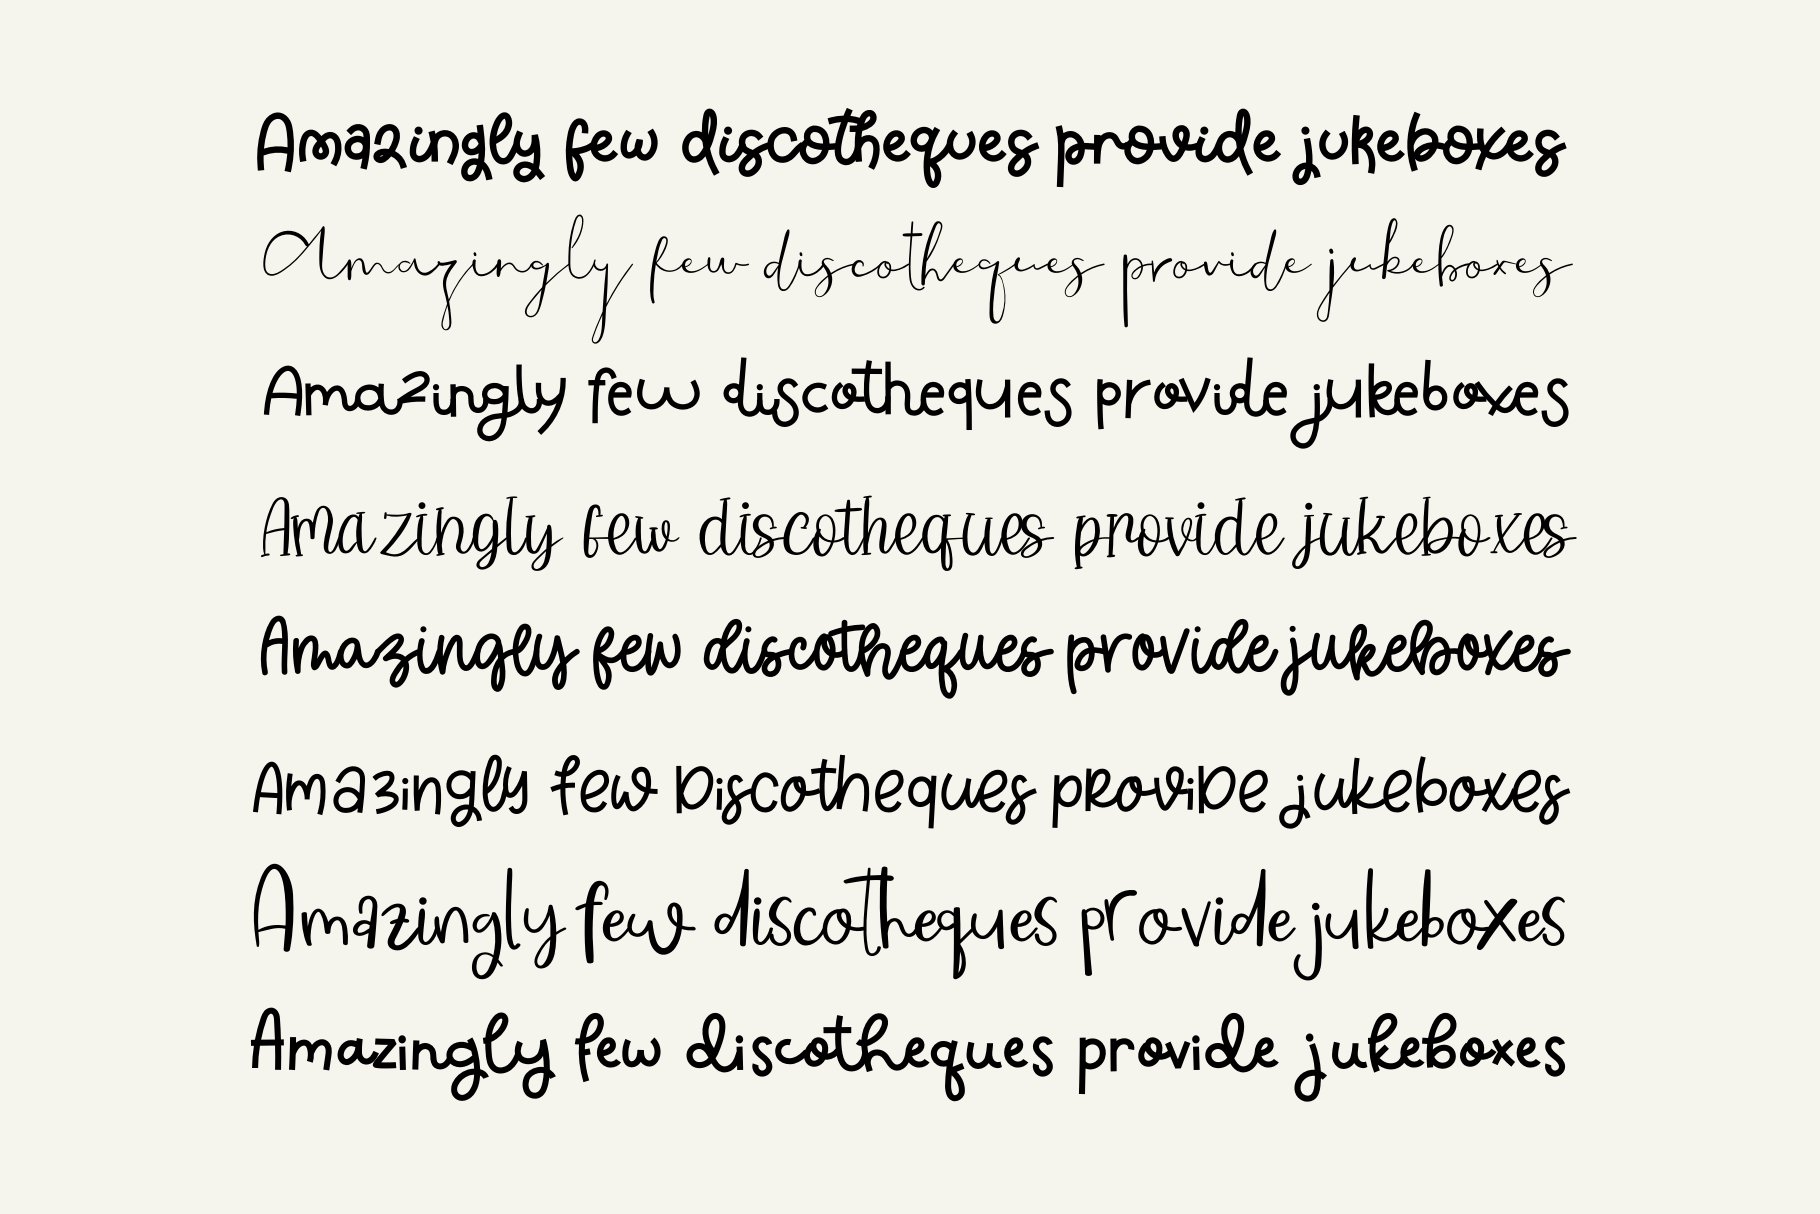 Amazingly few discotheques provide jukeboxes
Amazingly few discotheques provide jukeboxes
Amazingly few discotheques provide jukeboxes
Amazingly few discotheques provide jukeboxes
Amazingly few discotheques provide jukeboxes
Amazingly few Discotheques provide jukeboxes
Amazingly few discotheques provide jukeboxes
Amazingly few discotheques provide jukeboxes